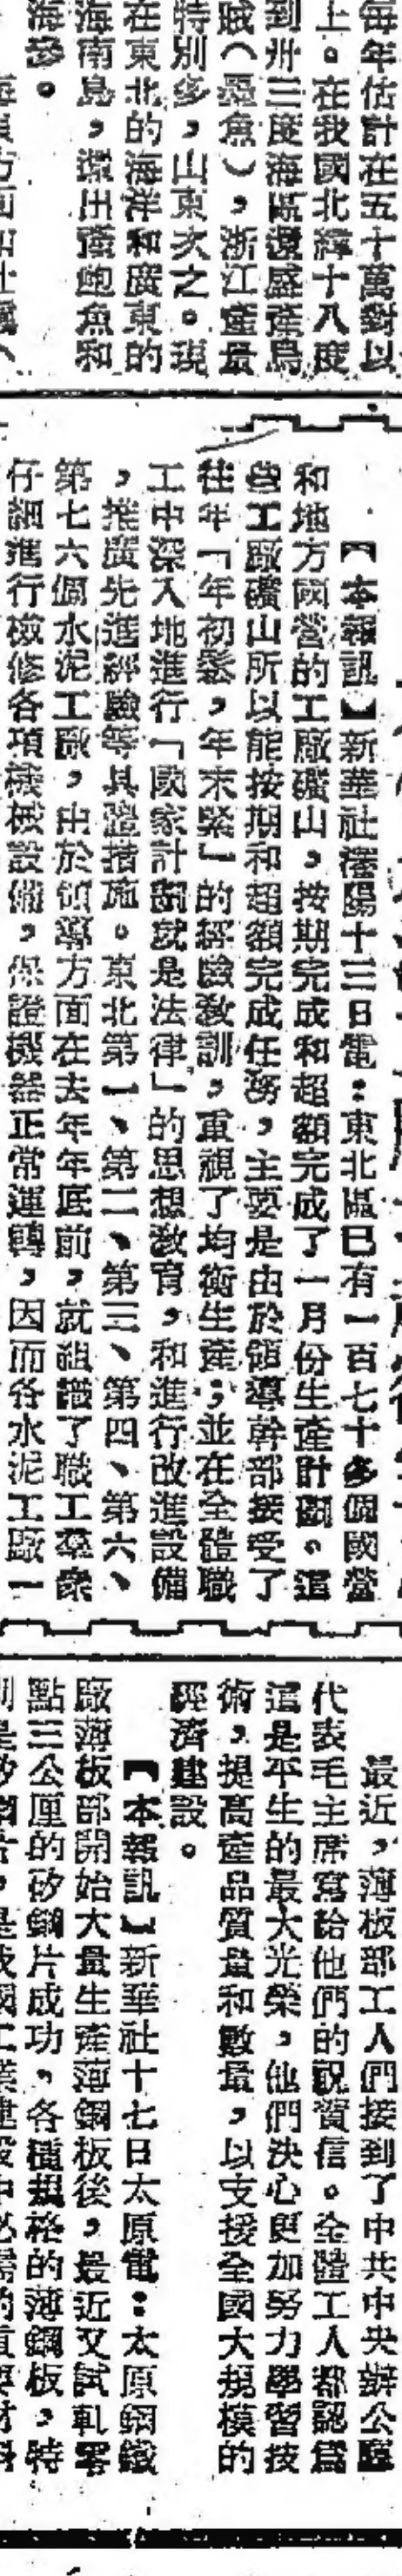 每年估計在五十萬對以
上。在我國北緯十八度
到卅三度海區還盛產烏
賊（墨魚），浙江產最
特別多，山東次之。現
在東北的海洋和廣東的
海南島，還出產鮑魚和
海參。
【本報訊】新華社瀋陽十三日電：東北區已有一百七十多個國營
和地方國營的工廠礦山，按期完成和超額完成了一月份生產計劃。這
些工廠礦山所以能按期和超額完成任務，主要是由於領導幹部接受了
往年「年初鬆，年末緊」的經驗教訓，重視了均衡生產；並在全體職
工中深入地進行「國家計劃就是法律」的思想教育，和進行改進設備
，推廣先進經驗等具體措施。東北第一、第二、第三、第四、第六、
第七六個水泥工廠，由於領導方面在去年年底前，就組識了職工羣衆
仔細進行檢修各項機械設備，保證機器正常運轉，因而各水泥工廠一
最近，薄板部工人們接到了中共中央辦公廳
代表毛主席寫給他們的祝賀信。全體工人都認爲
這是平生的最大光榮，他們決心更加努力學習技
術，提高產品質量和數量，以支援全國大規模的
經濟建設。
【本報訊】新華社十七日太原電：太原鋼鐵
廠薄板部開始大量生產薄鋼板後，最近又試軋零
點三公厘的矽鋼片成功，各種規格的薄鋼板，特